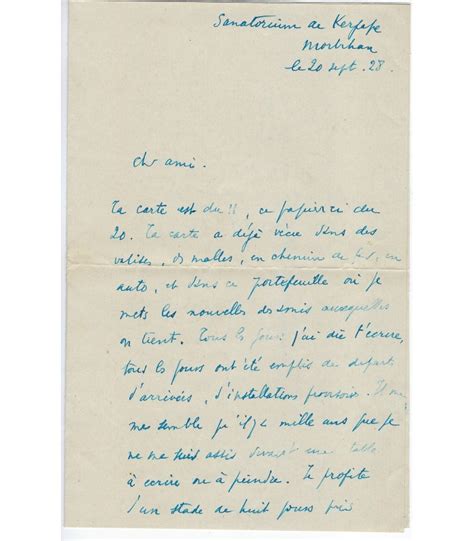 Sanatorium de Kerpape
Morbihan
le 20 sept. 28.
Ch ami.
Ta carte est du 11, ce papier ci du
20. Ta carte a déjà vécu dans des
valises, des malles, en chemin de fer, en
auto, et dans ce portefeuille où je
mets les nouvelles des amis auxquelles
on tient. Tous les jours j'ai dû t'écrire,
tous les jours ont été emplis de départs
d'arrivées, d'installations provisoires. Il me
me semble qu'il y a mille ans que je
ne me suis assis devant une table
à écrire ou à peindre. Je profite
d'un stade de huit jours